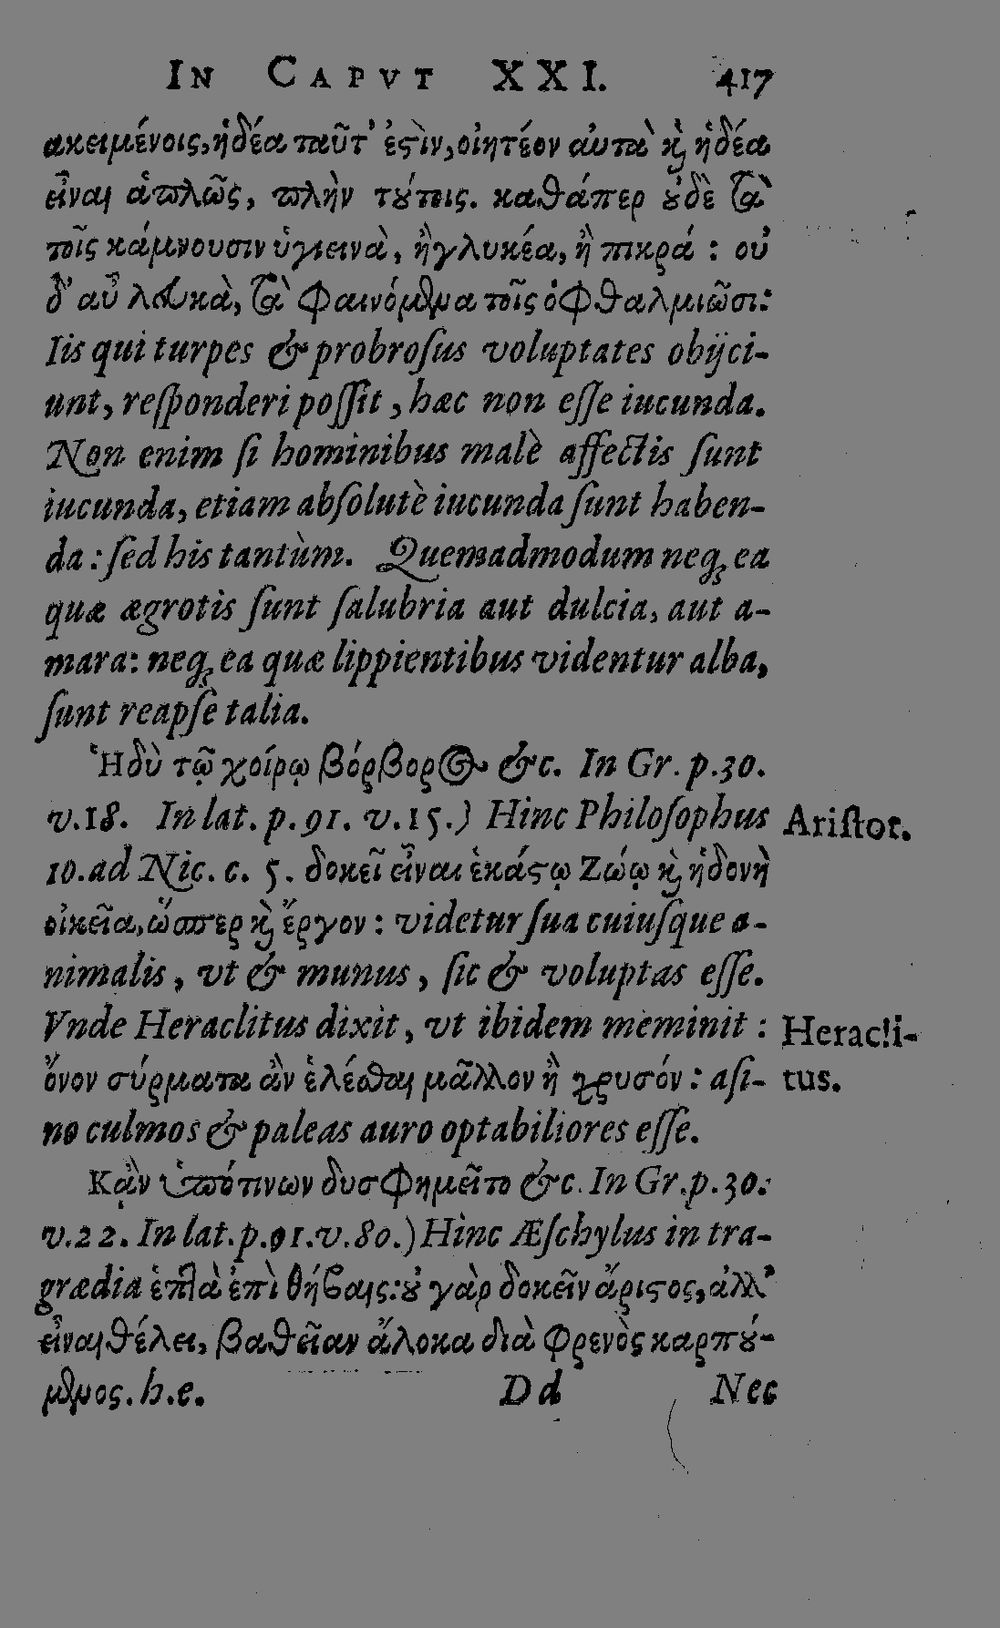 IN CAPVT XXI. 417
ακειμένοις, ἡδέα ταῦτ' ἐςὶν, οἰητέον αὐτὰ κὶ ἡδέα
εἶναι ἁπλῶς, πλὴν τούτοις. καθάπερ οὐδὲ τὰ
τοῖς κάμνουσιν ὑγιεινὰ, ἢ γλυκέα, ἢ πικρά : οὐ
δ' αὖ λευκὰ, τὰ φαινόμενα τοῖς ὀφθαλμιῶσι:
Iis qui turpes & probroſus voluptates obijci-
unt, reſponderi poſſit, hæc non eſſe iucunda.
Non enim ſi hominibus malè affectis ſunt
iucunda, etiam abſolutè iucunda ſunt haben-
da : ſed his tantùm. Quemadmodum neq; ea
quæ ægrotis ſunt ſalubria aut dulcia, aut a-
mara: neq; ea quæ lippientibus videntur alba,
ſunt reapſe talia.
Ἡδὺ τῷ χοίρῳ βόρβορος &c. In Gr. p. 30.
v. 18. In lat. p. 91. v. 15.) Hinc Philoſophus
Ariſtot.
10. ad Nic. c. 5. δοκεῖ εἶναι ἑκάςῳ Ζώῳ κὶ ἡδονὴ
οἰκεῖα, ὥσπερ κὶ ἔργον : videtur ſua cuiuſque a-
nimalis, vt & munus, ſic & voluptas eſſe.
Vnde Heraclitus dixit, vt ibidem meminit :
Heracli-
ὄνον σύρματα ἂν ἑλέσθαι μᾶλλον ἢ χρυσόν : aſi-
tus.
no culmos & paleas auro optabiliores eſſe.
Κἂν ὑπόπινων δυσφημεῖτο &c. In Gr. p. 30.
v. 22. In lat. p. 91. v. 80.) Hinc Æſchylus in tra-
grædia ἑπτὰ ἐπὶ θήβαις: οὐ γὰρ δοκεῖν ἄριςος, ἀλλ'
εἶναι θέλει, βαθεῖαν ἄλοκα διὰ φρενὸς καρπού-
μενος. h. e. Dd Nec